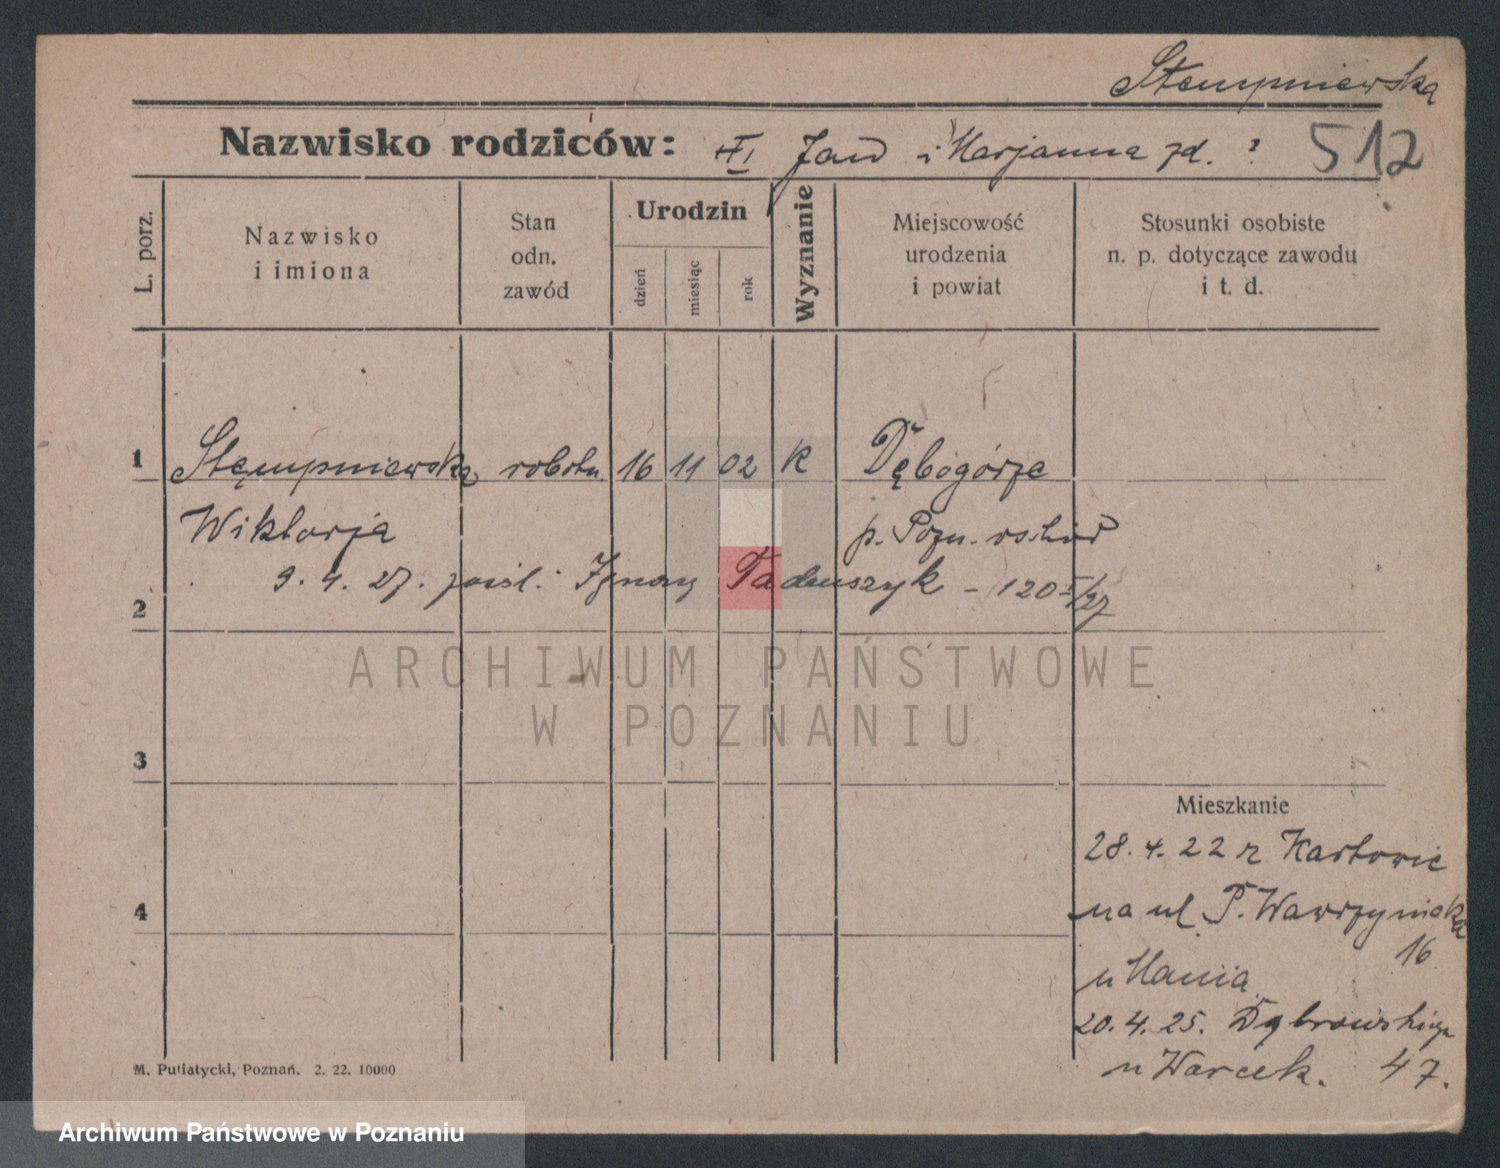 Stempniewska
Nazwisko rodziców: Jan i Marjanna zd. ?
512
L. porz.
Nazwisko i imiona
Stan odn. zawód
Urodzin
dzień
miesiąc
rok
Wyznanie
Miejscowość urodzenia i powiat
Stosunki osobiste n. p. dotyczące zawodu i t. d.
1 Stęmpniewska robotn. 16 11 02 K Dębogórze
Wiktorja p. Pozn. wschód
9. 4. 27. zaśl. Ignacy Tadeuszyk - 120 I/27
2
ARCHIWUM PAŃSTWOWE
W POZNANIU
3
Mieszkanie
28. 4. 22 z Karłowic
4
na ul P. Wawrzyniaka
16
u Mania
20. 4. 25. Dąbrowskiego
u Warcek. 47.
M. Putiatycki, Poznań. 2. 22. 10000
Archiwum Państwowe w Poznaniu